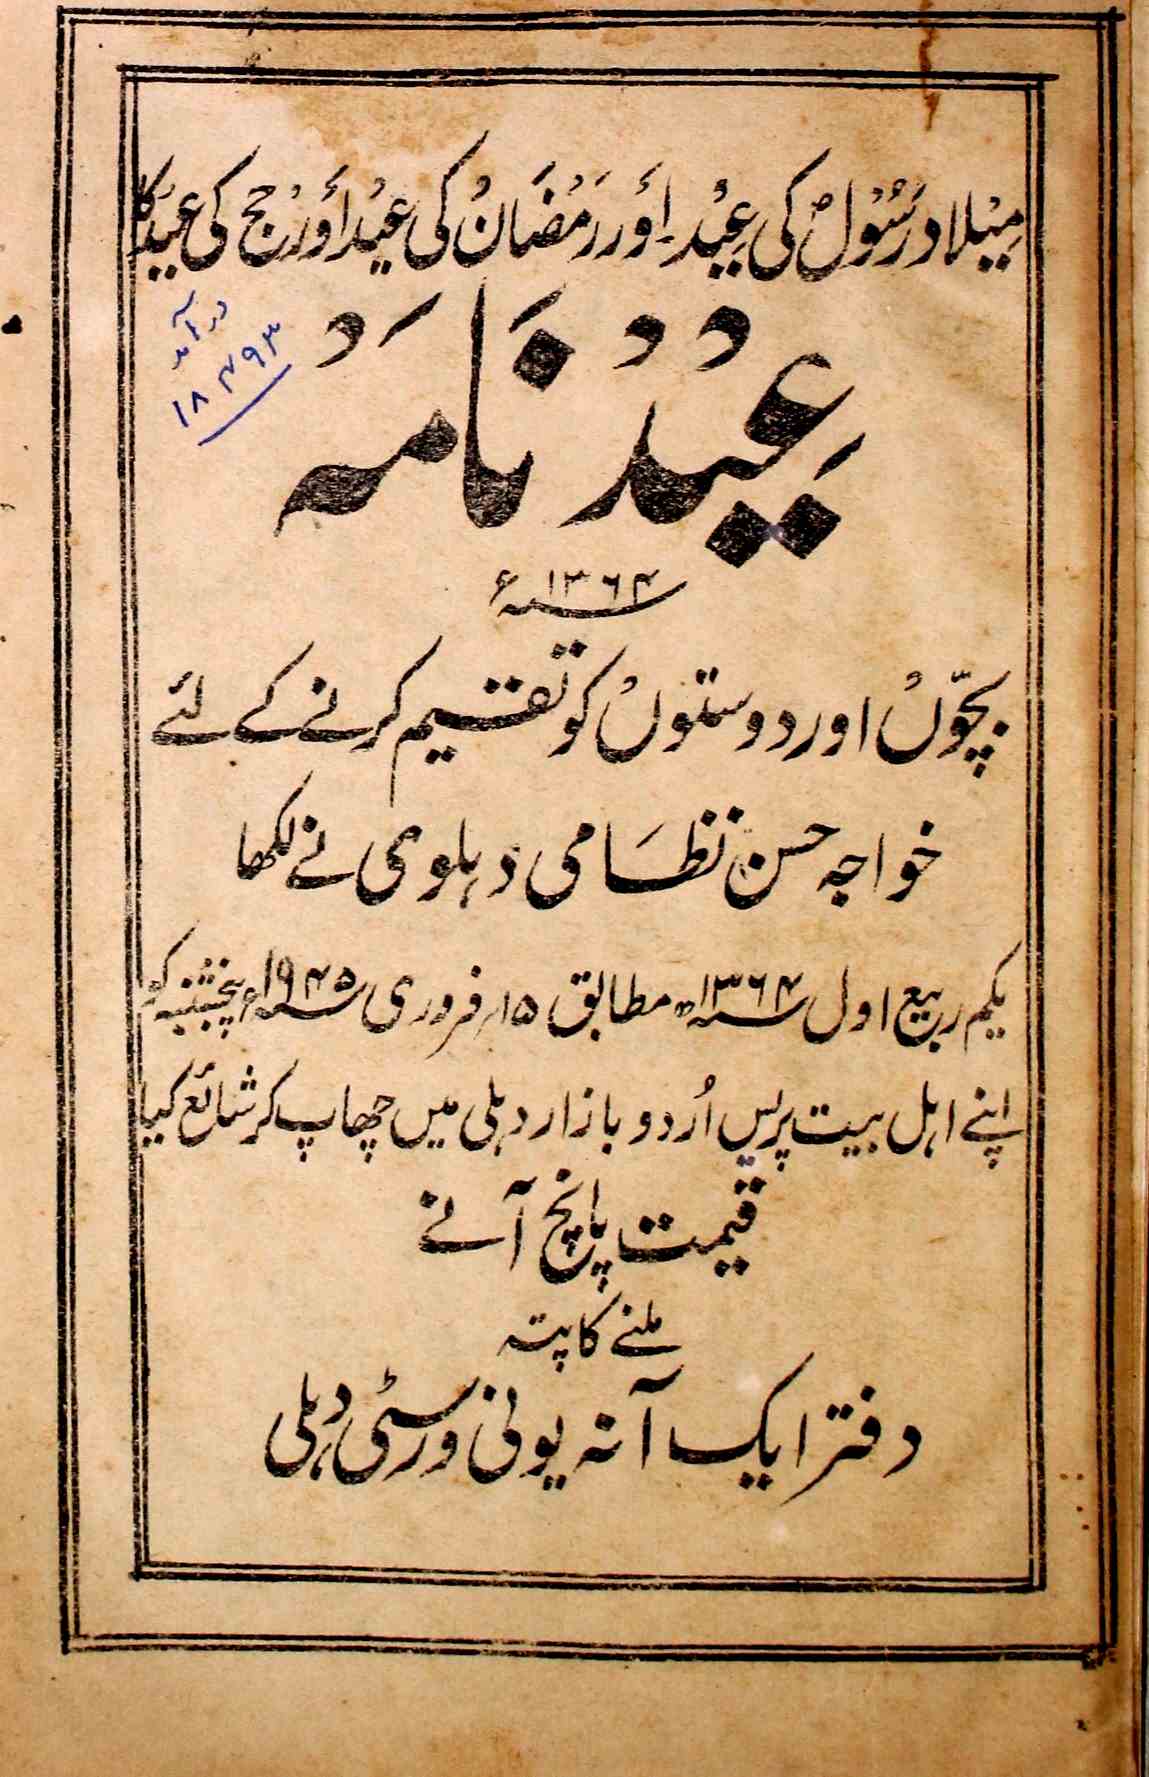 مِیْلاد رَسُوْلؐ کی عِیْد۔ اَور رَمْضَانْ کی عیْد اَورْ حج کی عیَد کا
عِیْدْ نَامَہ
درآمد
۱۸۴۹۳
۱۳۶۴ سنہ ء
بچّوںْ اور دوستوںْ کو تقسیم کرنے کے لئے
خواجہ حسن نظَامی دہلوی نے لکھا
یکم ربیع اول سنہ ۱۳۶۴ھ مطابق ۱۵ر فروری سنہ ۱۹۴۵ء پنجشنبہ کو
اپنے اہل بیت پریس اُردو بازار دہلی میں چھاپ کر شائع کیا
قیمت پانچ آنے
ملنے کا پتہ
دفتر ایک آنہ یونی ورسٹی دہلی